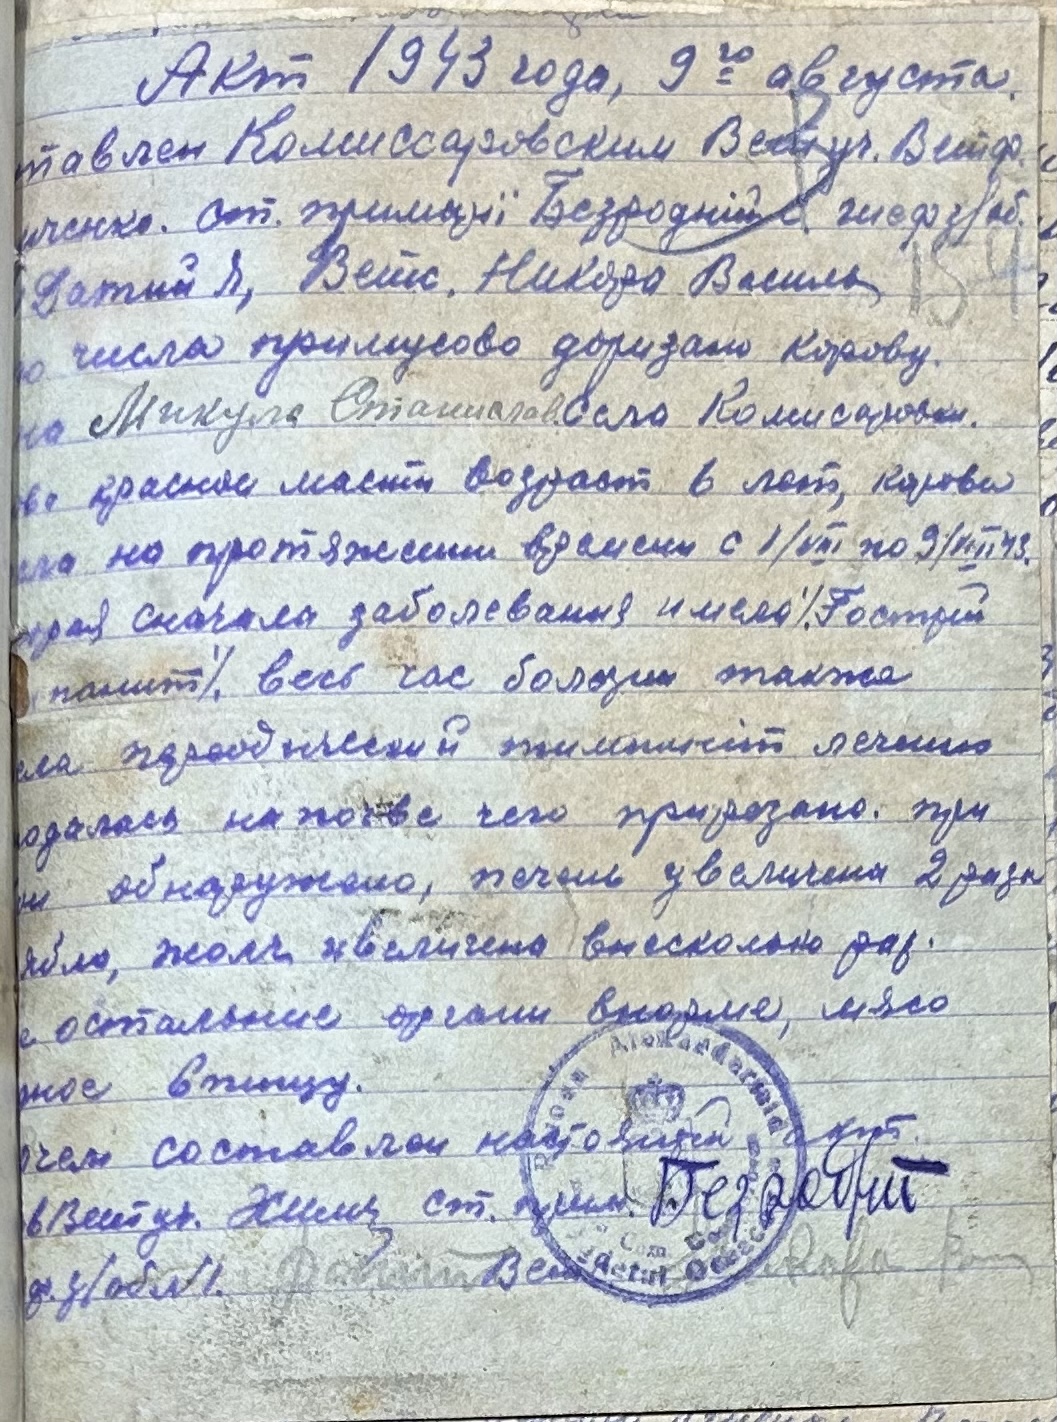 Акт 1943 года, 9го августа.
тавлен Комиссаровским Ветуч. Ветф.
ченко. ст. примарії Безродній и шеф з/об.
Датий Я, Ветс. Никора Василь
о числа примусово дорізано корову.
на Микула Станислав. села Комисаровки.
ове красной масти возраст 6 лет, корова
ела на протяжении времени с 1/VIII по 9/VIII 43.
орая сначала заболевания имела /"Гострий
панит"/. весь час болезни также
ела периодический тимпаніт лечению
одалась на почве чего прирезано. при
ии обнаружено, печень увеличена 2 раза
ябла, жолч увеличена внесколько раз.
е остальние органи внорме, мясо
ное впищу.
чем составлен настоящий акт.
в Ветуч. ст. прим. Безродній
ф. з/обл/. Вет